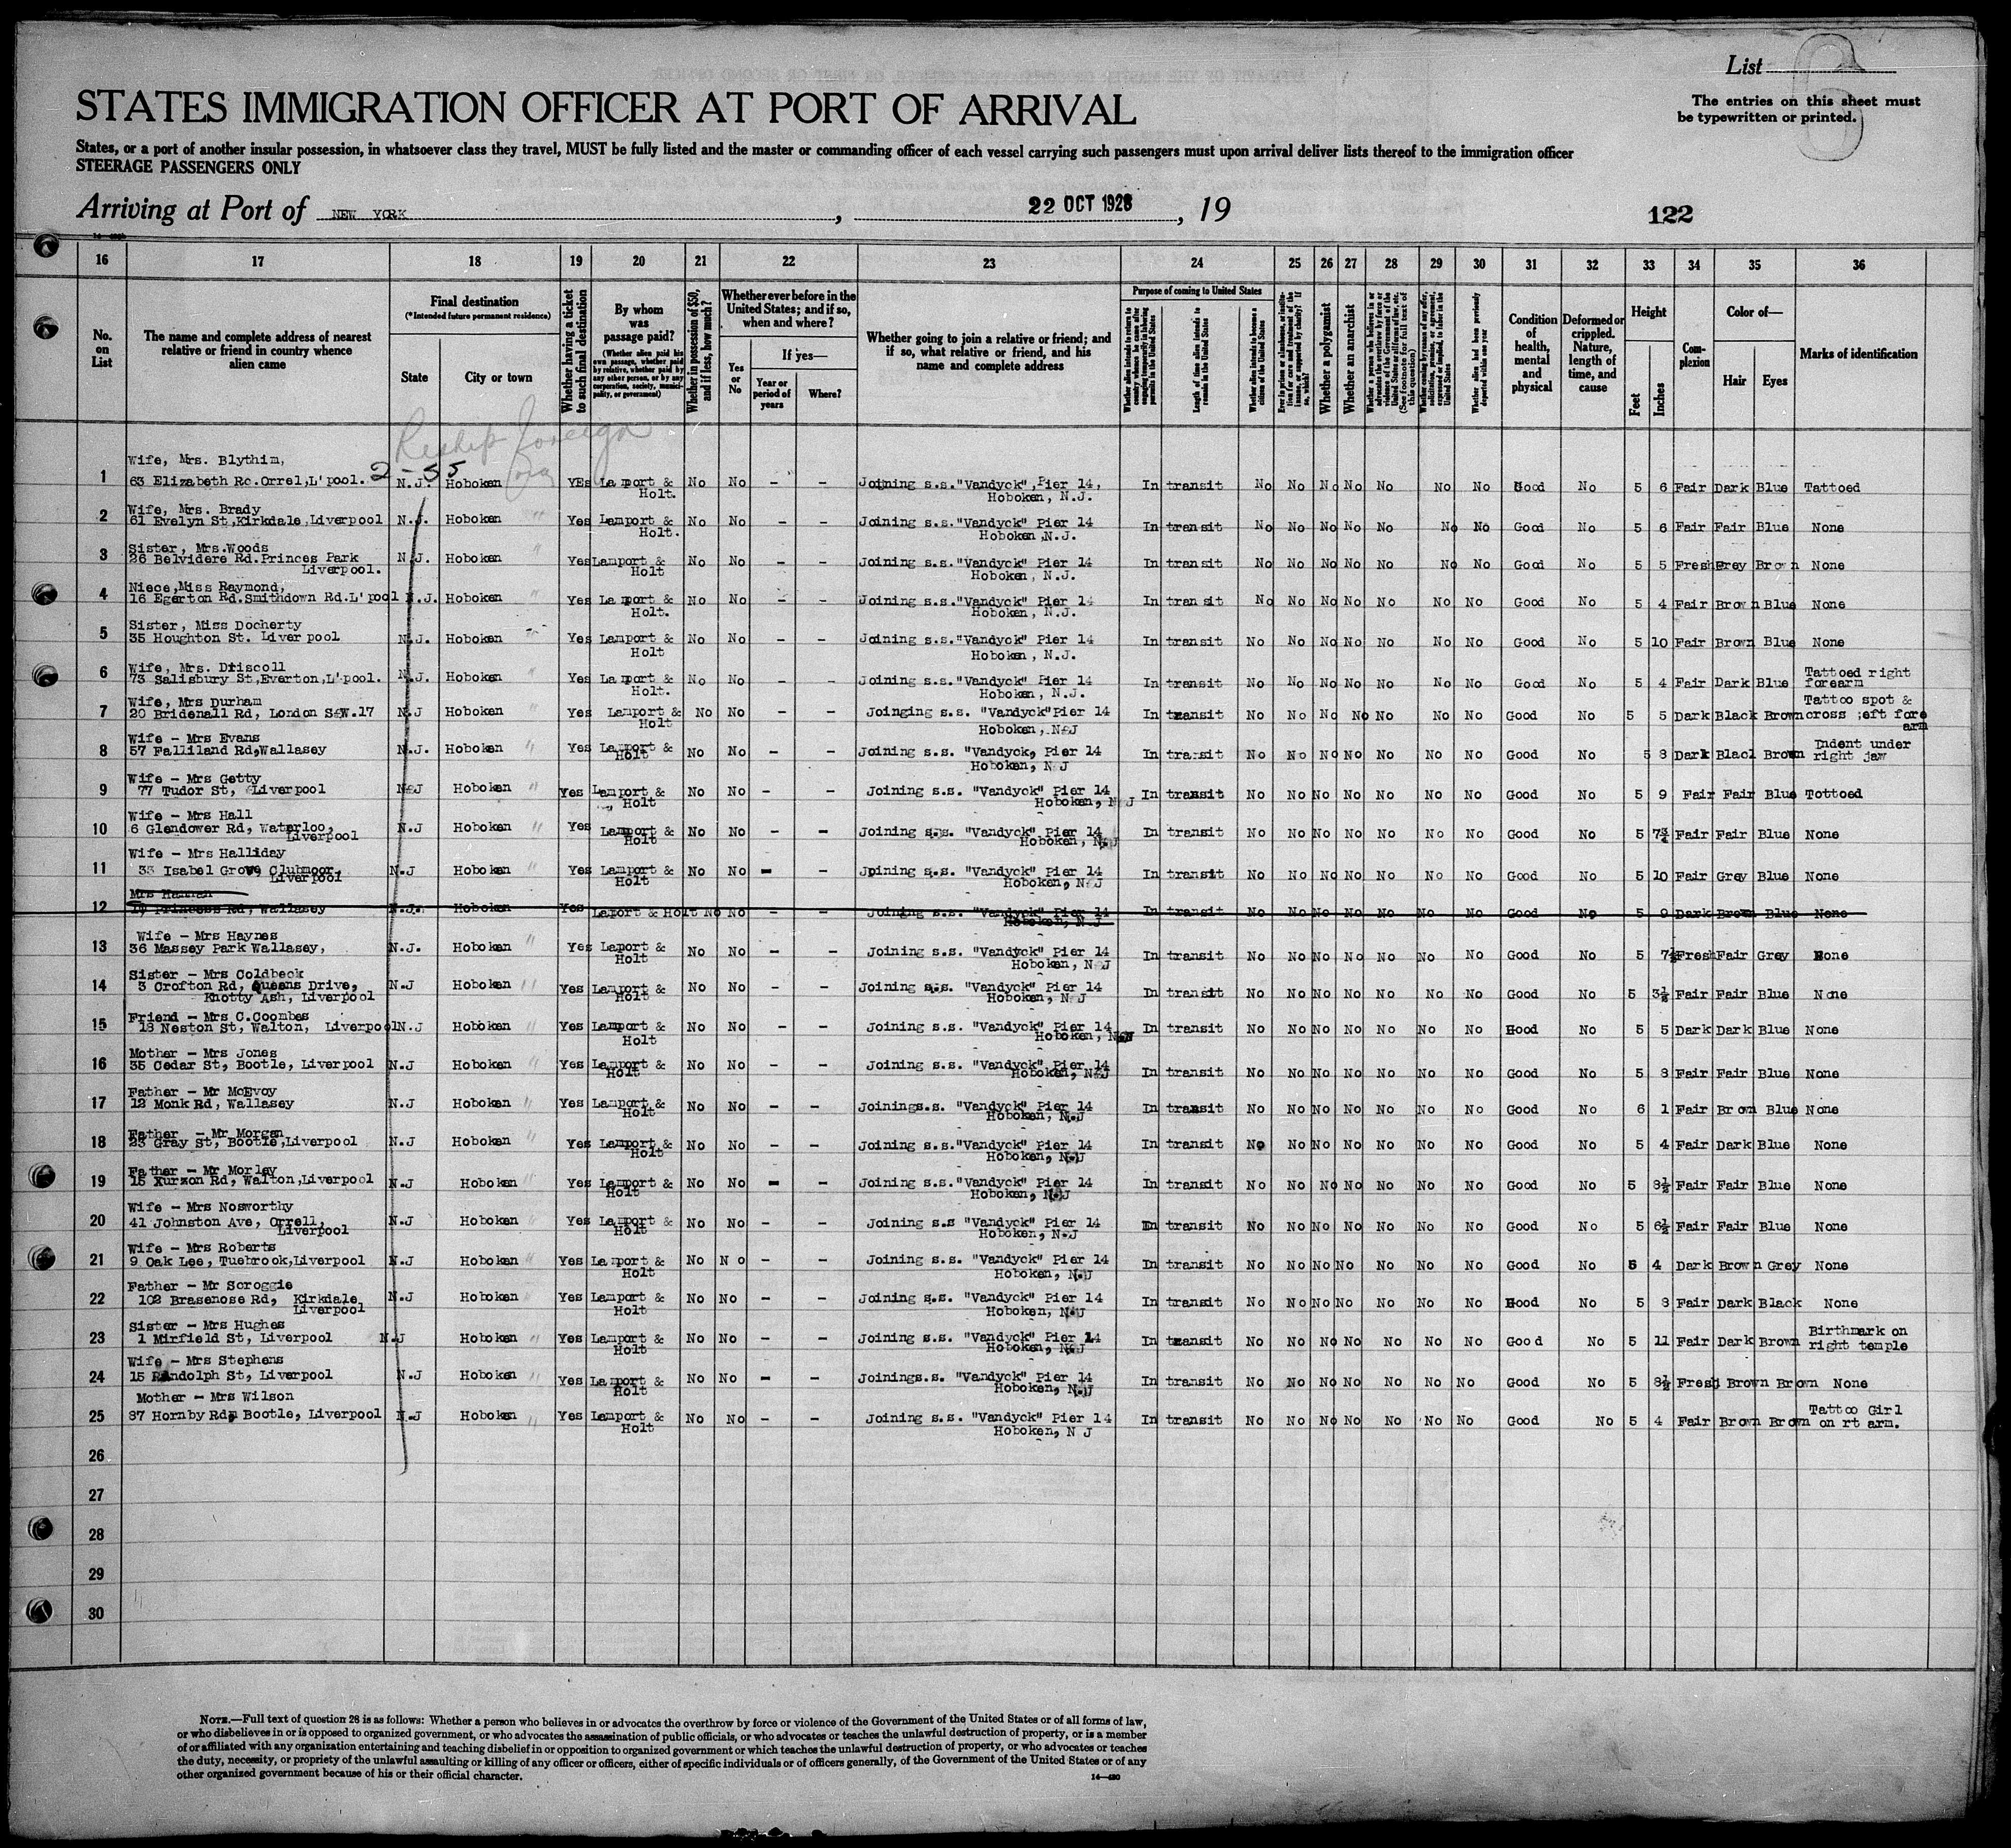 List
6
The entries on this sheet must
be typewritten or printed.
STATES IMMIGRATION OFFICER AT PORT OF ARRIVAL
States, or a port of another insular possession, in whatsoever class they travel, MUST be fully listed and the master or commanding officer of each vessel carrying such passengers must upon arrival deliver lists thereof to the immigration officer
STEERAGE PASSENGERS ONLY
Arriving at Port of NEW YORK, 22 OCT 1928, 19
122
16 17 18 19 20 21 22 23 24 25 26 27 28 29 30 31 32 33 34 35 36
No. on List
The name and complete address of nearest relative or friend in country whence alien came
Final destination
(*Intended future permanent residence)
State
City or town
Whether having a ticket to such final destination
By whom was passage paid?
(Whether alien paid his own passage, whether paid by relative, whether paid by any other person, or by any corporation, society, municipality, or government)
Whether in possession of $50, and if less, how much?
Whether ever before in the United States; and if so, when and where?
Yes or No
If yes—
Year or period of years
Where?
Whether going to join a relative or friend; and if so, what relative or friend, and his name and complete address
Purpose of coming to United States
Whether alien intends to return to country whence he came after engaging temporarily in laboring pursuits in the United States
Length of time alien intends to remain in the United States
Whether alien intends to become a citizen of the United States
Ever in prison or almshouse, or institution for care and treatment of the insane, or supported by charity? If so, which?
Whether a polygamist
Whether an anarchist
Whether a person who believes in or advocates the overthrow by force or violence of the Government of the United States or all forms of law, etc. (See footnote for full text of this question)
Whether coming by reason of any offer, solicitation, promise, or agreement, expressed or implied, to labor in the United States
Whether alien had been previously deported within one year
Condition of health, mental and physical
Deformed or crippled. Nature, length of time, and cause
Height
Feet
Inches
Complexion
Color of—
Hair
Eyes
Marks of identification
Reship foreign
2-55
1 Wife, Mrs. Blythim,
63 Elizabeth Rc.Orrel,L'pool. N.J. Hoboken YEs Lamport & Holt. No No - - Joining s.s."Vandyck",Pier 14, Hoboken, N.J. In transit No No No No No No No Good No 5 6 Fair Dark Blue Tattoed
2 Wife, Mrs. Brady
61 Evelyn St,Kirkdale,Liverpool N.J. Hoboken " Yes Lamport & Holt. No No - - Joining s.s."Vandyck" Pier 14 Hoboken,N.J. In transit No No No No No No No Good No 5 6 Fair Fair Blue None
3 Sister, Mrs.Woods
26 Belvidere Rd.Princes Park Liverpool. N.J. Hoboken " Yes Lamport & Holt No No - - Joining s.s."Vandyck" Pier 14 Hoboken, N.J. In transit No No No No No No No Good No 5 5 Fresh Grey Brown None
4 Niece,Miss Raymond,
16 Egerton Rd.Smithdown Rd.L'pool N.J. Hoboken " Yes Lamport & Holt. No No - - Joining s.s."Vandyck" Pier 14 Hoboken, N.J. In transit No No No No No No No Good No 5 4 Fair Brown Blue None
5 Sister, Miss Docherty
35 Houghton St. Liverpool N.J. Hoboken " Yes Lamport & Holt No No - - Joining s.s."Vandyck" Pier 14 Hoboken, N.J. In transit No No No No No No No Good No 5 10 Fair Brown Blue None
6 Wife, Mrs. Driscoll
73 Salisbury St,Everton,L'pool. N.J. Hoboken " Yes Lamport & Holt. No No - - Joining s.s."Vandyck" Pier 14 Hoboken, N.J. In transit No No No No No No No Good No 5 4 Fair Dark Blue Tattoed right forearm
7 Wife, Mrs Durham
20 Bridenall Rd, London S.W.17 N.J Hoboken " Yes Lamport & Holt No No - - Joinging s.s. "Vandyck"Pier 14 Hoboken, N.J In transit No No No No No No No Good No 5 5 Dark Black Brown Tattoo spot & cross ;eft fore arm
8 Wife - Mrs Evans
57 Falliland Rd,Wallasey N.J. Hoboken " Yes Lamport & Holt No No - - Joining s.s. "Vandyck, Pier 14 Hoboken, N J In transit No No No No No No No Good No 5 8 Dark Blacl Brown Indent under right jaw
9 Wife - Mrs Getty
77 Tudor St, Liverpool N.J Hoboken " Yes Lamport & Holt No No - - Joining s.s. "Vandyck" Pier 14 Hoboken, N J In transit No No No No No No No Good No 5 9 Fair Fair Blue Tottoed
10 Wife - Mrs Hall
6 Glendower Rd, Waterloo, Liverpool N.J Hoboken " Yes Lamport & Holt No No - - Joining s.s. "Vandyck" Pier 14 Hoboken, N.J In transit No No No No No No No Good No 5 7¾ Fair Fair Blue None
11 Wife - Mrs Halliday
33 Isabel Grove, Clubmoor, Liverpool N.J Hoboken " Yes Lamport & Holt No No - - Joining s.s. "Vandyck" Pier 14 Hoboken, N J In transit No No No No No No No Good No 5 10 Fair Grey Blue None
12 Mrs Hannan
19 Princess Rd, Wallasey N.J. Hoboken Yes Laport & Holt No No - - Joining s.s. "Vandyck" Pier 14 Hoboken, N.J In transit No No No No No No No Good No 5 9 Dark Brown Blue None
13 Wife - Mrs Haynes
36 Massey Park Wallasey, N.J. Hoboken " Yes Lamport & Holt No No - - Joining s.s. "Vandyck" Pier 14 Hoboken, N J In transit No No No No No No No Good No 5 7½ Fresh Fair Grey None
14 Sister - Mrs Coldbeck
3 Crofton Rd, Queens Drive, Knotty Ash, Liverpool N.J Hoboken " Yes Lamport & Holt No No - - Joining s.s. "Vandyck" Pier 14 Hoboken, N J In transit No No No No No No No Good No 5 3½ Fair Fair Blue None
15 Friend - Mrs C.Coombes
18 Neston St, Walton, Liverpool N.J Hoboken " Yes Lamport & Holt No No - - Joining s.s. "Vandyck" Pier 14 Hoboken, In transit No No No No No No No Good No 5 5 Dark Dark Blue None
16 Mother - Mrs Jones
35 Cedar St, Bootle, Liverpool N.J Hoboken " Yes Lamport & Holt No No - - Joining s.s. "Vandyck" Pier 14 Hoboken, N.J In transit No No No No No No No Good No 5 8 Fair Fair Blue None
17 Father - Mr McEvoy
12 Monk Rd, Wallasey N.J Hoboken " Yes Lamport & Holt No No - - Joinings.s. "Vandyck" Pier 14 Hoboken, N.J In transit No No No No No No No Good No 6 1 Fair Brown Blue None
18 Father - Mr Morgan
23 Gray St, Bootle,Liverpool N.J Hoboken " Yes Lamport & Holt No No - - Joining s.s."Vandyck" Pier 14 Hoboken, N.J In transit No No No No No No No Good No 5 4 Fair Dark Blue None
19 Father - Mr Morley
15 Kurzon Rd, Walton,Liverpool N.J Hoboken " Yes Lamport & Holt No No - - Joining s.s."Vandyck" Pier 14 Hoboken, N.J In transit No No No No No No No Good No 5 8½ Fair Fair Blue None
20 Wife - Mrs Nosworthy
41 Johnston Ave, Orrell, Liverpool N.J Hoboken " Yes Lamport & Holt No No - - Joining s.s "Vandyck" Pier 14 Hoboken, N.J In transit No No No No No No No Good No 5 6½ Fair Fair Blue None
21 Wife - Mrs Roberts
9 Oak Lee, Tuebrook,Liverpool N.J Hoboken " Yes Lamport & Holt No No - - Joining s.s. "Vandyck" Pier 14 Hoboken, N.J In transit No No No No No No No Good No 5 4 Dark Brown Grey None
22 Father - Mr Scroggie
102 Brasenose Rd, Kirkdale Liverpool N.J Hoboken " Yes Lamport & Holt No No - - Joining s.s. "Vandyck" Pier 14 Hoboken, N.J In transit No No No No No No No Good No 5 8 Fair Dark Black None
23 Sister - Mrs Hughes
1 Mirfield St, Liverpool N.J Hoboken " Yes Lamport & Holt No No - - Joining s.s. "Vandyck" Pier 14 Hoboken, N.J In transit No No No No No No No Good No 5 11 Fair Dark Brown Birthmark on right temple
24 Wife - Mrs Stephens
15 Randolph St, Liverpool N.J Hoboken " Yes Lamport & Holt No No - - Joinings.s. "Vandyck" Pier 14 Hoboken, N.J In transit No No No No No No No Good No 5 8½ Fresh Brown Brown None
25 Mother - Mrs Wilson
87 Hornby Rd, Bootle, Liverpool N.J Hoboken " Yes Lamport & Holt No No - - Joining s.s. "Vandyck" Pier 14 Hoboken, N J In transit No No No No No No No Good No 5 4 Fair Brown Brown Tattoo Girl on rt arm.
26
27
28
29
30
NOTE.—Full text of question 28 is as follows: Whether a person who believes in or advocates the overthrow by force or violence of the Government of the United States or of all forms of law,
or who disbelieves in or is opposed to organized government, or who advocates the assassination of public officials, or who advocates or teaches the unlawful destruction of property, or is a member
of or affiliated with any organization entertaining and teaching disbelief in or opposition to organized government or which teaches the unlawful destruction of property, or who advocates or teaches
the duty, necessity, or propriety of the unlawful assaulting or killing of any officer or officers, either of specific individuals or of officers generally, of the Government of the United States or of any
other organized government because of his or their official character.
14—480